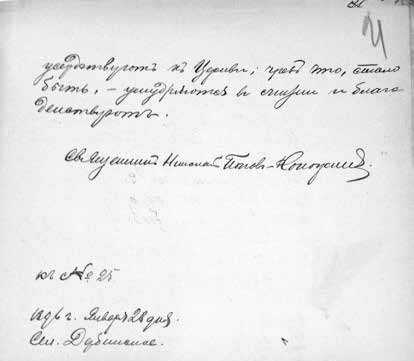 усердствуютъ къ Церкви; чрезъ это, стало
быть, – умудряются въ жизни и благо
денствуютъ.
Священникъ Николай Поповъ-
къ № 25
1896 г. Января 28 дня.
Сел. Дубинское.